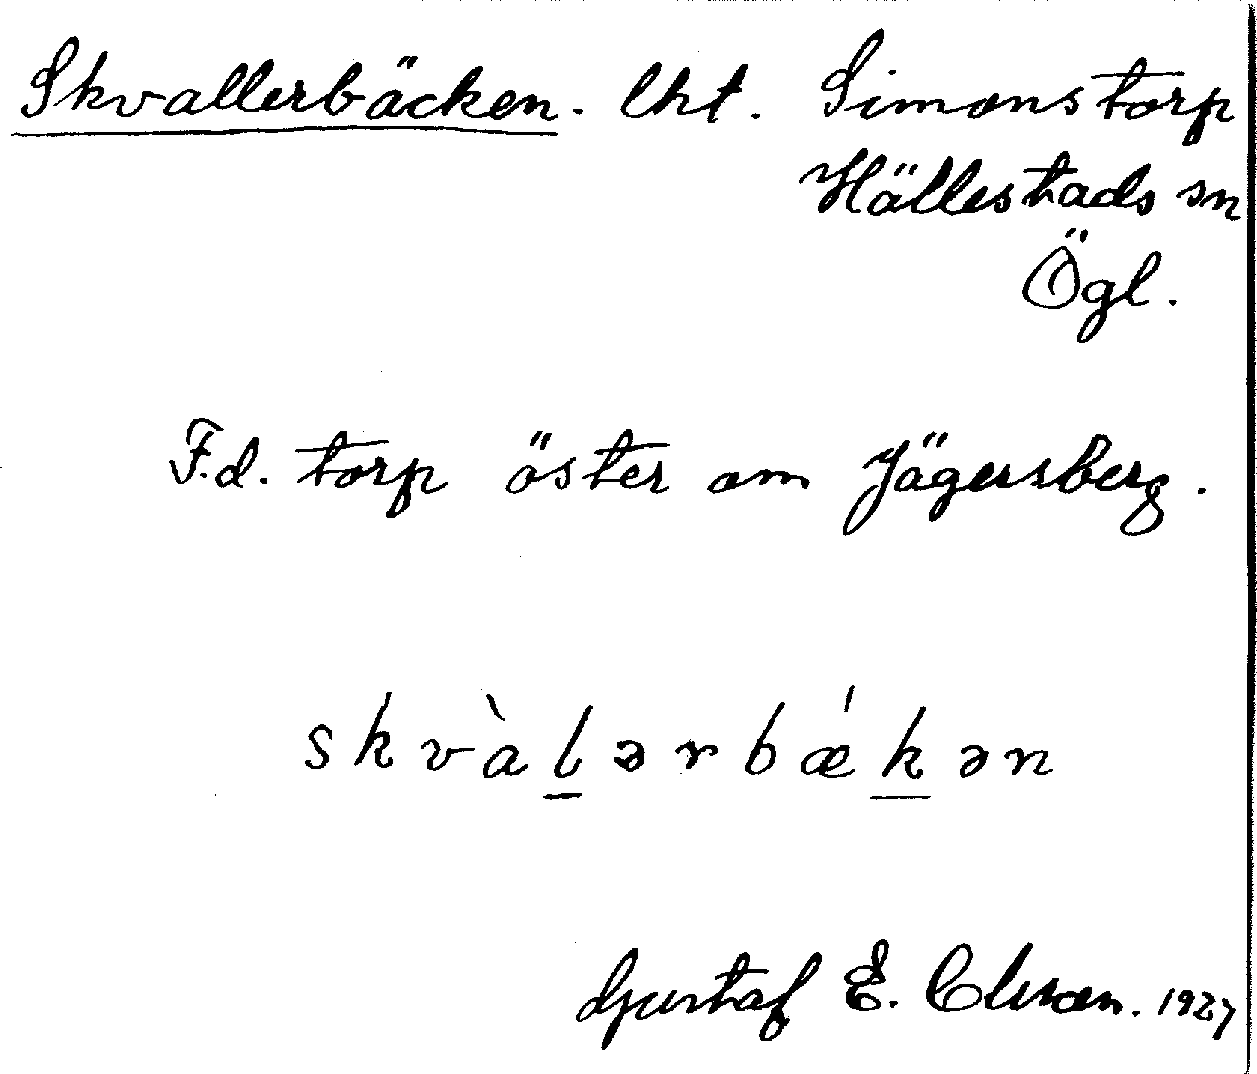 Skvallerbäcken. lht. Simonstorp
Hällestads sn
Ögl.
F.d. torp öster om Jägersberg.
skvàl̲ərbǽk̲ən
Gustaf E. 1927